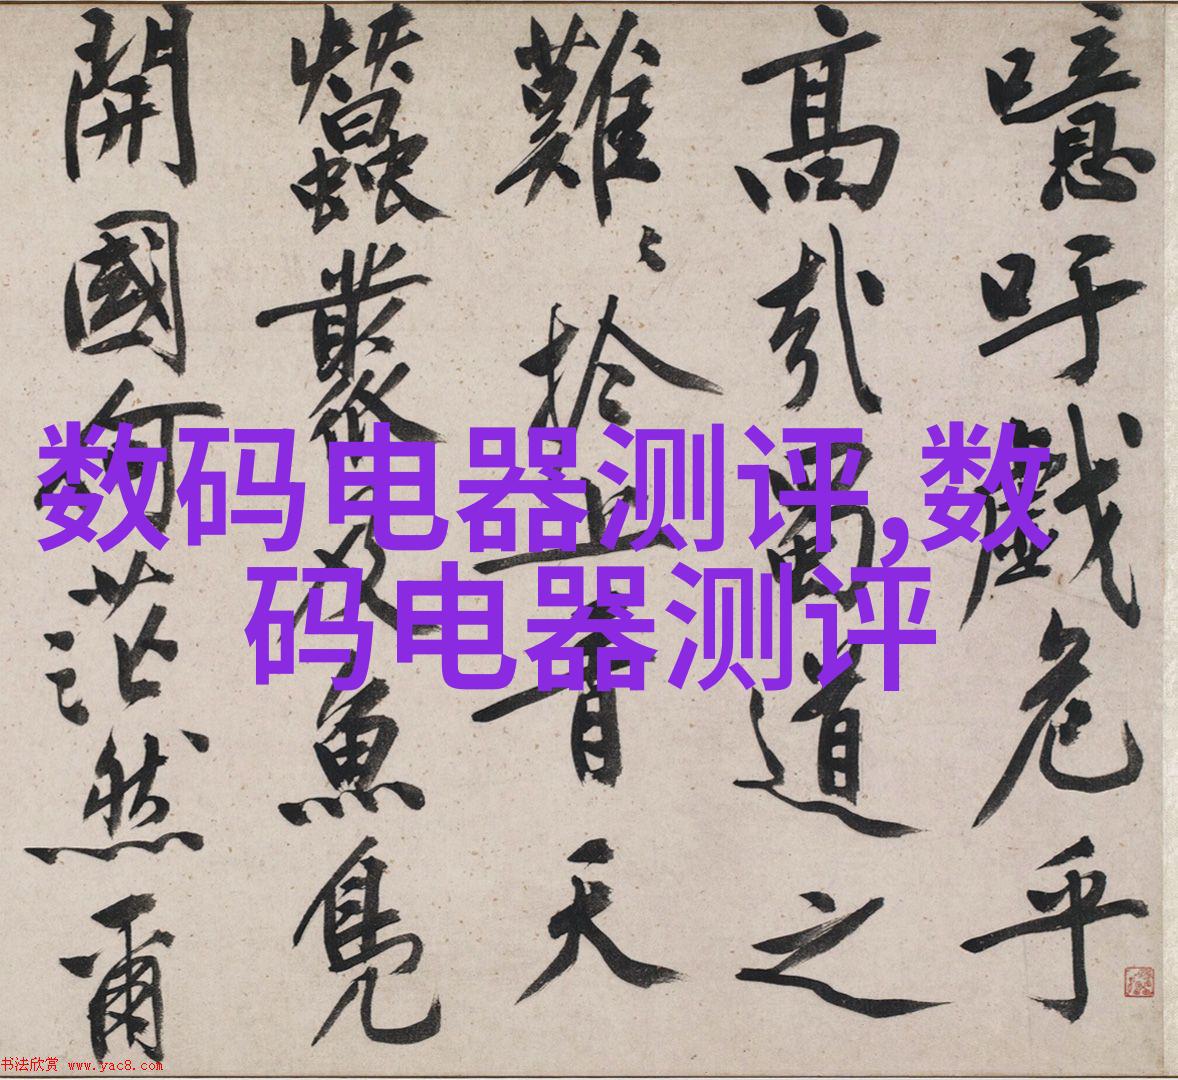 噫吁戲危乎
高哉蜀道之
難〻於上青天
蠶叢及魚鳧
開國何茫然爾
数码电器测评,数
码电器测评
书法欣赏 www.yac8.com